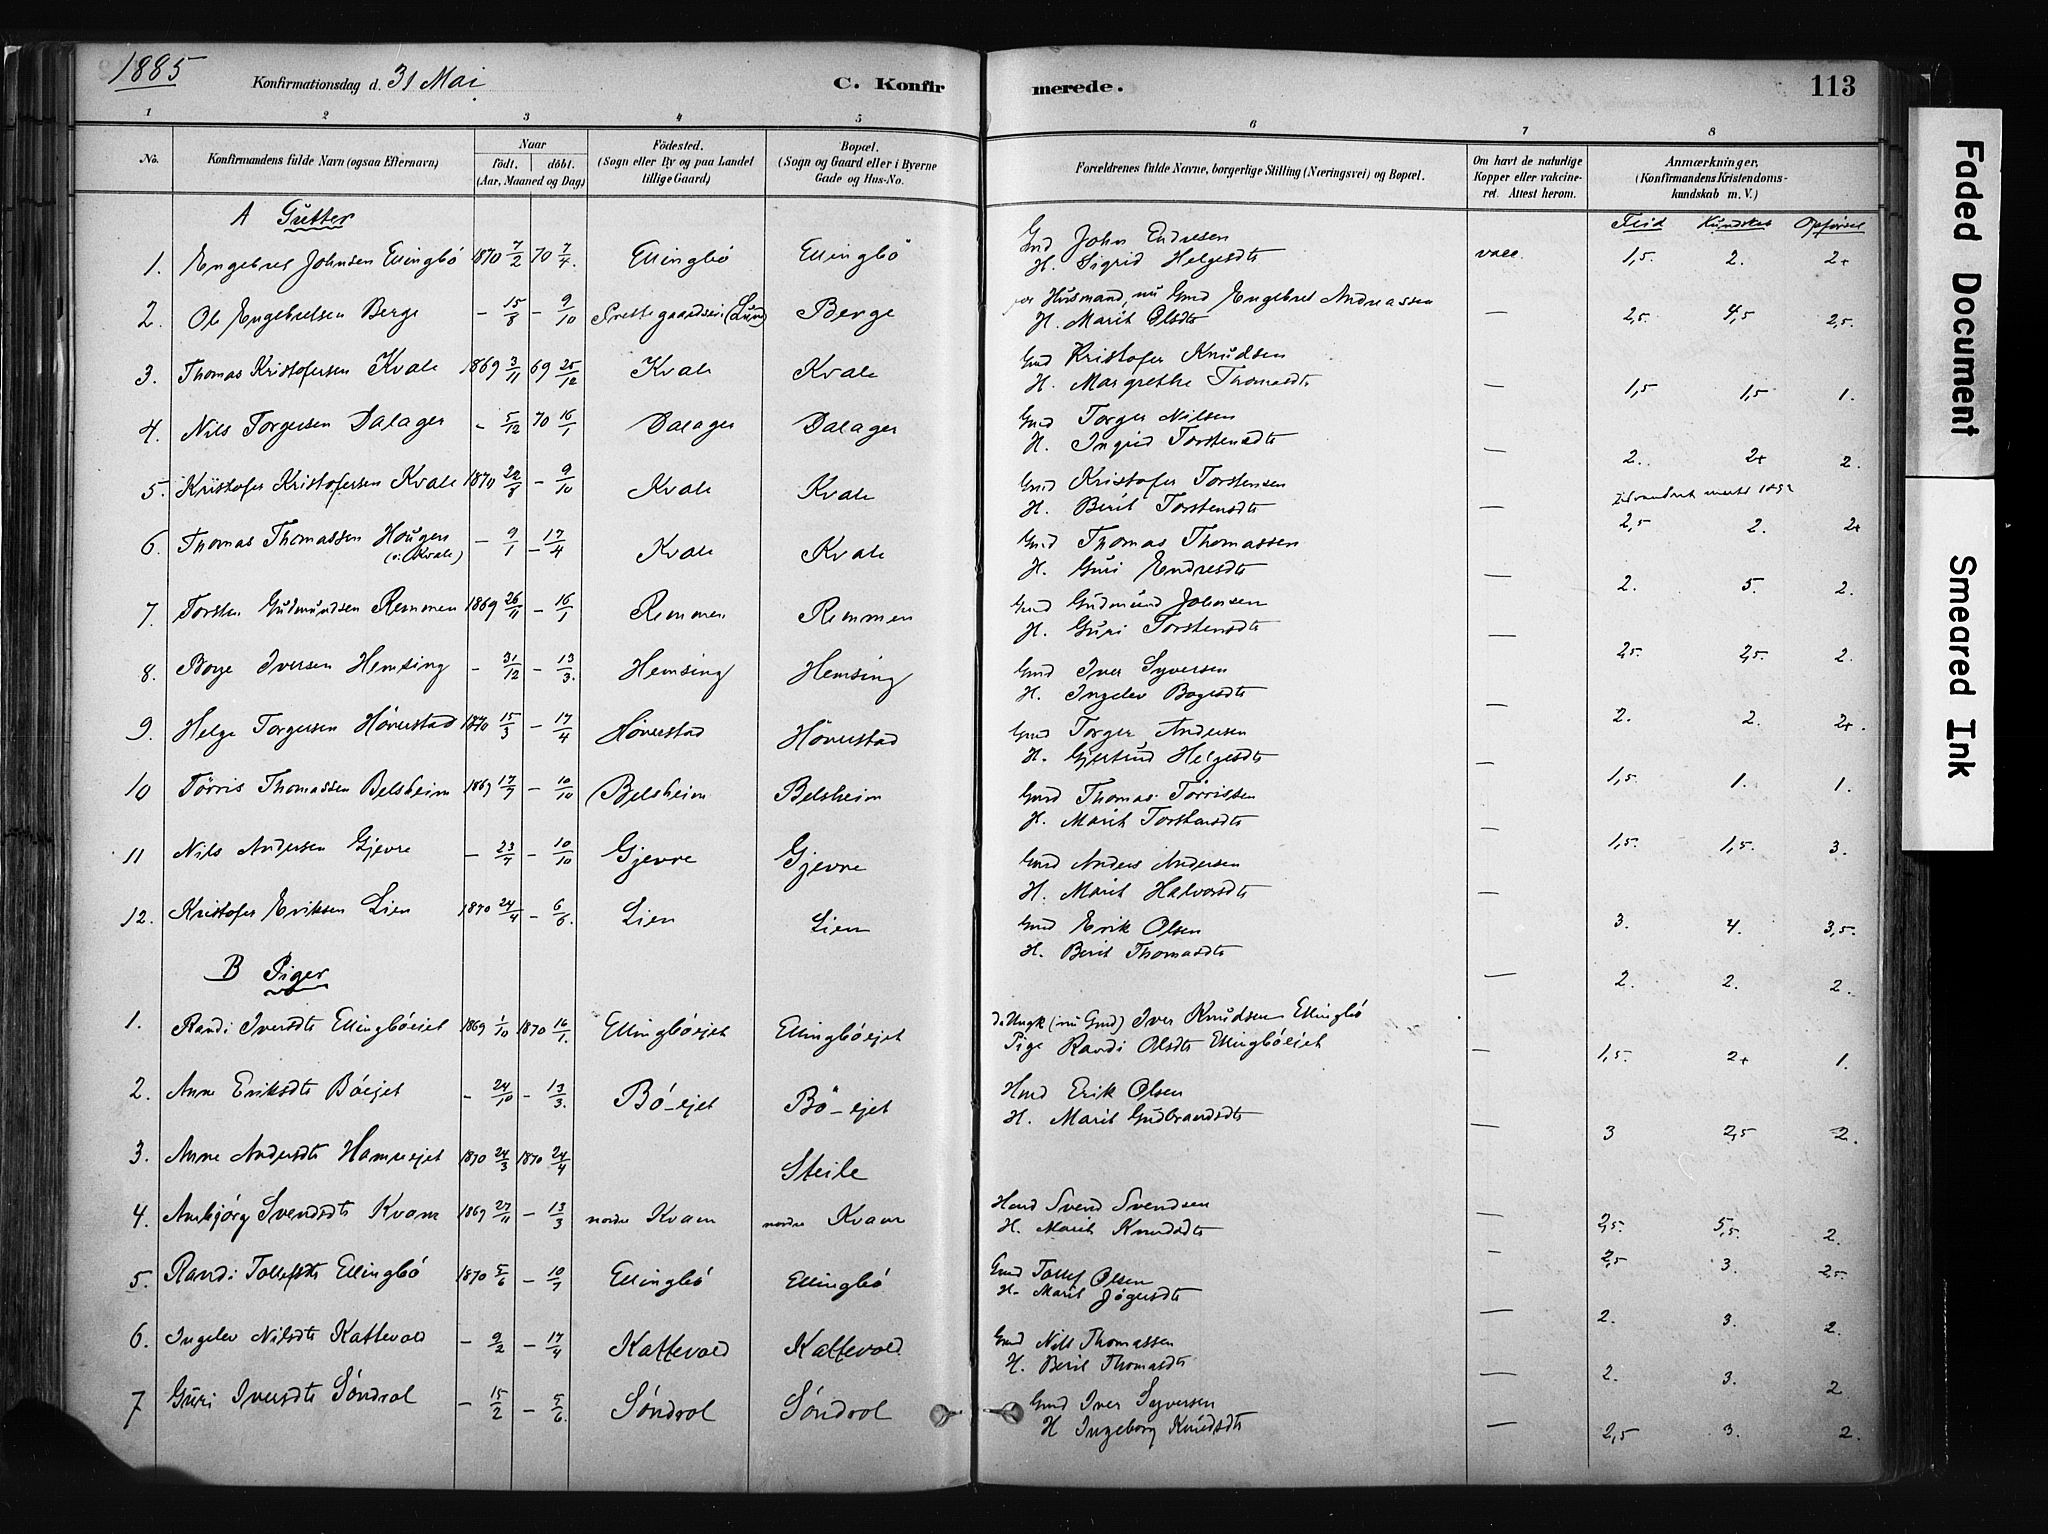 1885 Konfirmationsdag d. 31 Mai C. Konfirmerede. 113
1 2 3 4 5 6 7 8
No. Konfirmandens fulde Navn (ogsaa Efternavn) Naar født. døbt. (Aar, Maaned og Dag) Födested. (Sogn eller By og paa Landet tillige Gaard) Bopæl. (Sogn og Gaard eller i Byerne Gade og Hus-No. Forældrenes fulde Navne, borgerlige Stilling (Næringsvei) og Bopæl. Om havt de naturlige Kopper eller vakcineret. Attest herom. Anmærkninger. (Konfirmandens Kristendomskundskab m. V.)
A Gutter Flid Kundskab Opførsel
1. Engebret Johnsen Ellingbö 1870 7/2 70 7/4. Ellingbö Ellingbö Gmd John Endresen vacc. 1,5. 2. 2+
H. Sigrid Helgesdt
2. Ole Engebretsen Berge - 15/8 - 9/10 Prestegaardsei (Lund) Berge Husmand, nu Gmd Engebret Andreassen — 2,5. 4,5 2,5.
H. Marit Olsdt
3. Thomas Kristofersen Kvale 1869 3/11 69 25/12 Kvale Kvale Gmd Kristofer Knudsen — 1,5 1,5 1.
H. Margrethe Thomasdt
4. Nils Torgersen Dalager - 5/12 70 16/1 Dalager Dalager Gmd Torger Nilsen — 2. 2+ 2.
H. Ingrid Torstensdt
5. Kristofer Kristofersen Kvale 1870 22/8 - 9/10 Kvale Kvale Gmd Kristofer Torstensen — 2,5 2. 2+
H. Berit Torstensdt
6. Thomas Thomassen Hougen - 9/1 - 17/4 Kvale Kvale Gmd Thomas Thomassen — 2. 5. 2.
(i Kvale) H. Guri Endresdt
7. Torsten Gudmundsen Remmen 1869 26/11 - 16/1 Remmen Remmen Gmd Gudmund Johnsen — 2,5. 2,5. 2.
H. Guri Torstensdt
8. Boye Iversen Hemsing - 31/12 - 13/3. Hemsing Hemsing Gmd Iver Syversen — 2. 2. 2+.
H. Ingelev Bogesdt
9. Helge Torgersen Höverstad 1870 15/3 - 17/4 Höverstad Höverstad Gmd Torger Andersen — 1,5. 1. 1.
H. Gjertrud Helgesdt
10 Törris Thomassen Belsheim 1869 17/7 - 10/10 Belsheim Belsheim Gmd Thomas Törrissen — 1,5. 1,5. 3.
H. Marit Torstensdt
11 Nils Andersen Gjevre - 23/7 - 10/10 Gjevre Gjevre Gmd Anders Andersen — 3. 4. 3,5.
H. Marit Halvorsdt
12. Kristofer Eriksen Lien 1870 24/4 - 6/6. Lien Lien Gmd Erik Olsen — 2. 2. 2.
H. Berit Thomasdt
B Piger
1. Randi Iversdt Ellingböejet 1869 1/10 1870 16/1. Ellingböejet Ellingböejet (nu Gmd) Iver Knudsen Ellingbö — 1,5. 2+ 1.
Pige Randi Olsdt Ellingböejet
2. Anne Eriksdt Böejet - 24/10 - 13/3. Bö-ejet Bö-ejet Hmd Erik Olsen — 3 2,5 2.
H. Marit Gudbrandsdt
3. Anne Andersdt Hamreejet 1870 24/3 1870 24/4 Steile
4. Anbjörg Svendsdt Kvam 1869 27/11 - 13/3 nordre Kvam nordre Kvam Hmd Svend Svendsen — 2,5. 5,5. 2.
H. Marit Knudsdt
5. Randi Tollefsdt Ellingbö 1870 5/6 - 10/7 Ellingbö Ellingbö Gmd Tollef Olsen — 2,5 3. 2,5.
H. Marit Jögersdt
6. Ingelev Nilsdt Kattevold - 9/2 - 17/4 Kattevold Kattevold. Gmd Nils Thomassen — 2. 3. 2.
H. Berit Thomasdt
7 Guri Iversdt Söndrol - 15/2 - 5/6. Söndrol Söndrol Gmd Iver Syversen — 2. 3. 2
H Ingeborg Knudsdt — 2,5 3. 2.
Faded Document
Smeared Ink